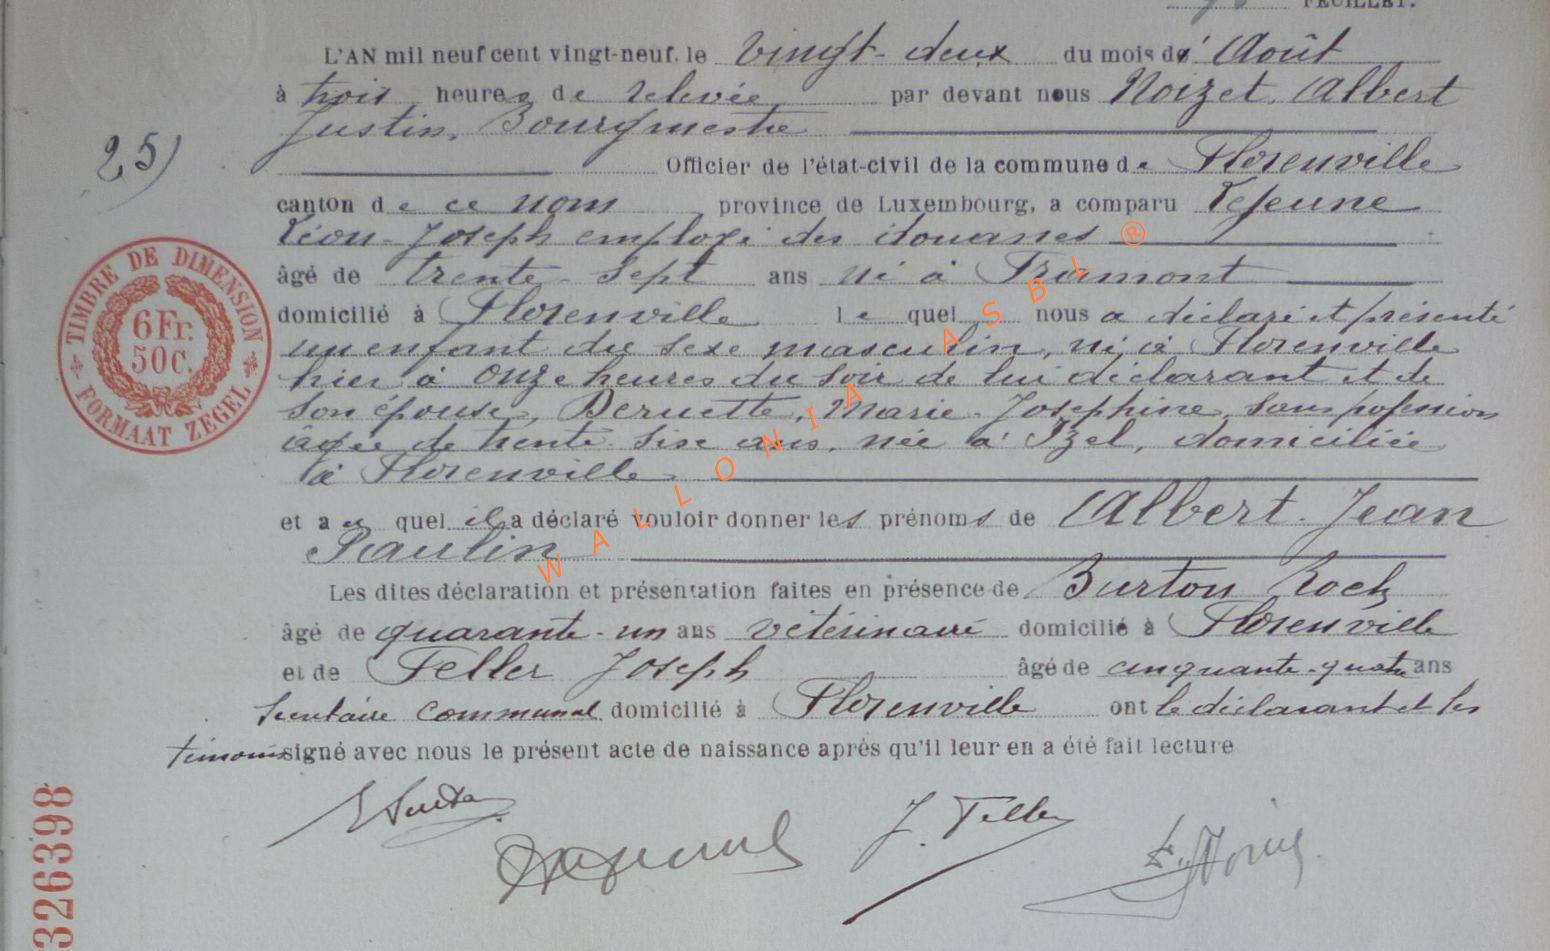 FEUILLET.
L'AN mil neuf cent vingt-neuf, le vingt-deux du mois de Août
à trois heures de relevée par devant nous Noizet, Albert
Justin, Bourgmestre
25)
Officier de l'état-civil de la commune de Florenville
canton de ce nom province de Luxembourg, a comparu Lejeune
Léon-Joseph employé des douanes
âgé de trente-sept ans né à Tramont
domicilié à Florenville le quel nous a déclaré et présenté
un enfant du sexe masculin, né à Florenville
hier à onze heures du soir de lui déclarant et de
son épouse, Deruette, Marie-Josephine, sans profession
âgée de trente-six ans, née à Izel, domiciliée
à Florenville
et a quel il a déclaré vouloir donner les prénoms de Albert-Jean
Paulin
Les dites déclaration et présentation faites en présence de Burton Roch
âgé de quarante-un ans vétérinaire domicilié à Florenville
et de Feller Joseph âgé de cinquante-quatre ans
Secrétaire communal domicilié à Florenville ont le déclarant et les
témoins signé avec nous le présent acte de naissance aprés qu'il leur en a été fait lecture
J. Feller
TIMBRE DE DIMENSION
6Fr.
50C.
FORMAAT ZEGEL
326398
WALLONIA ASBL ®